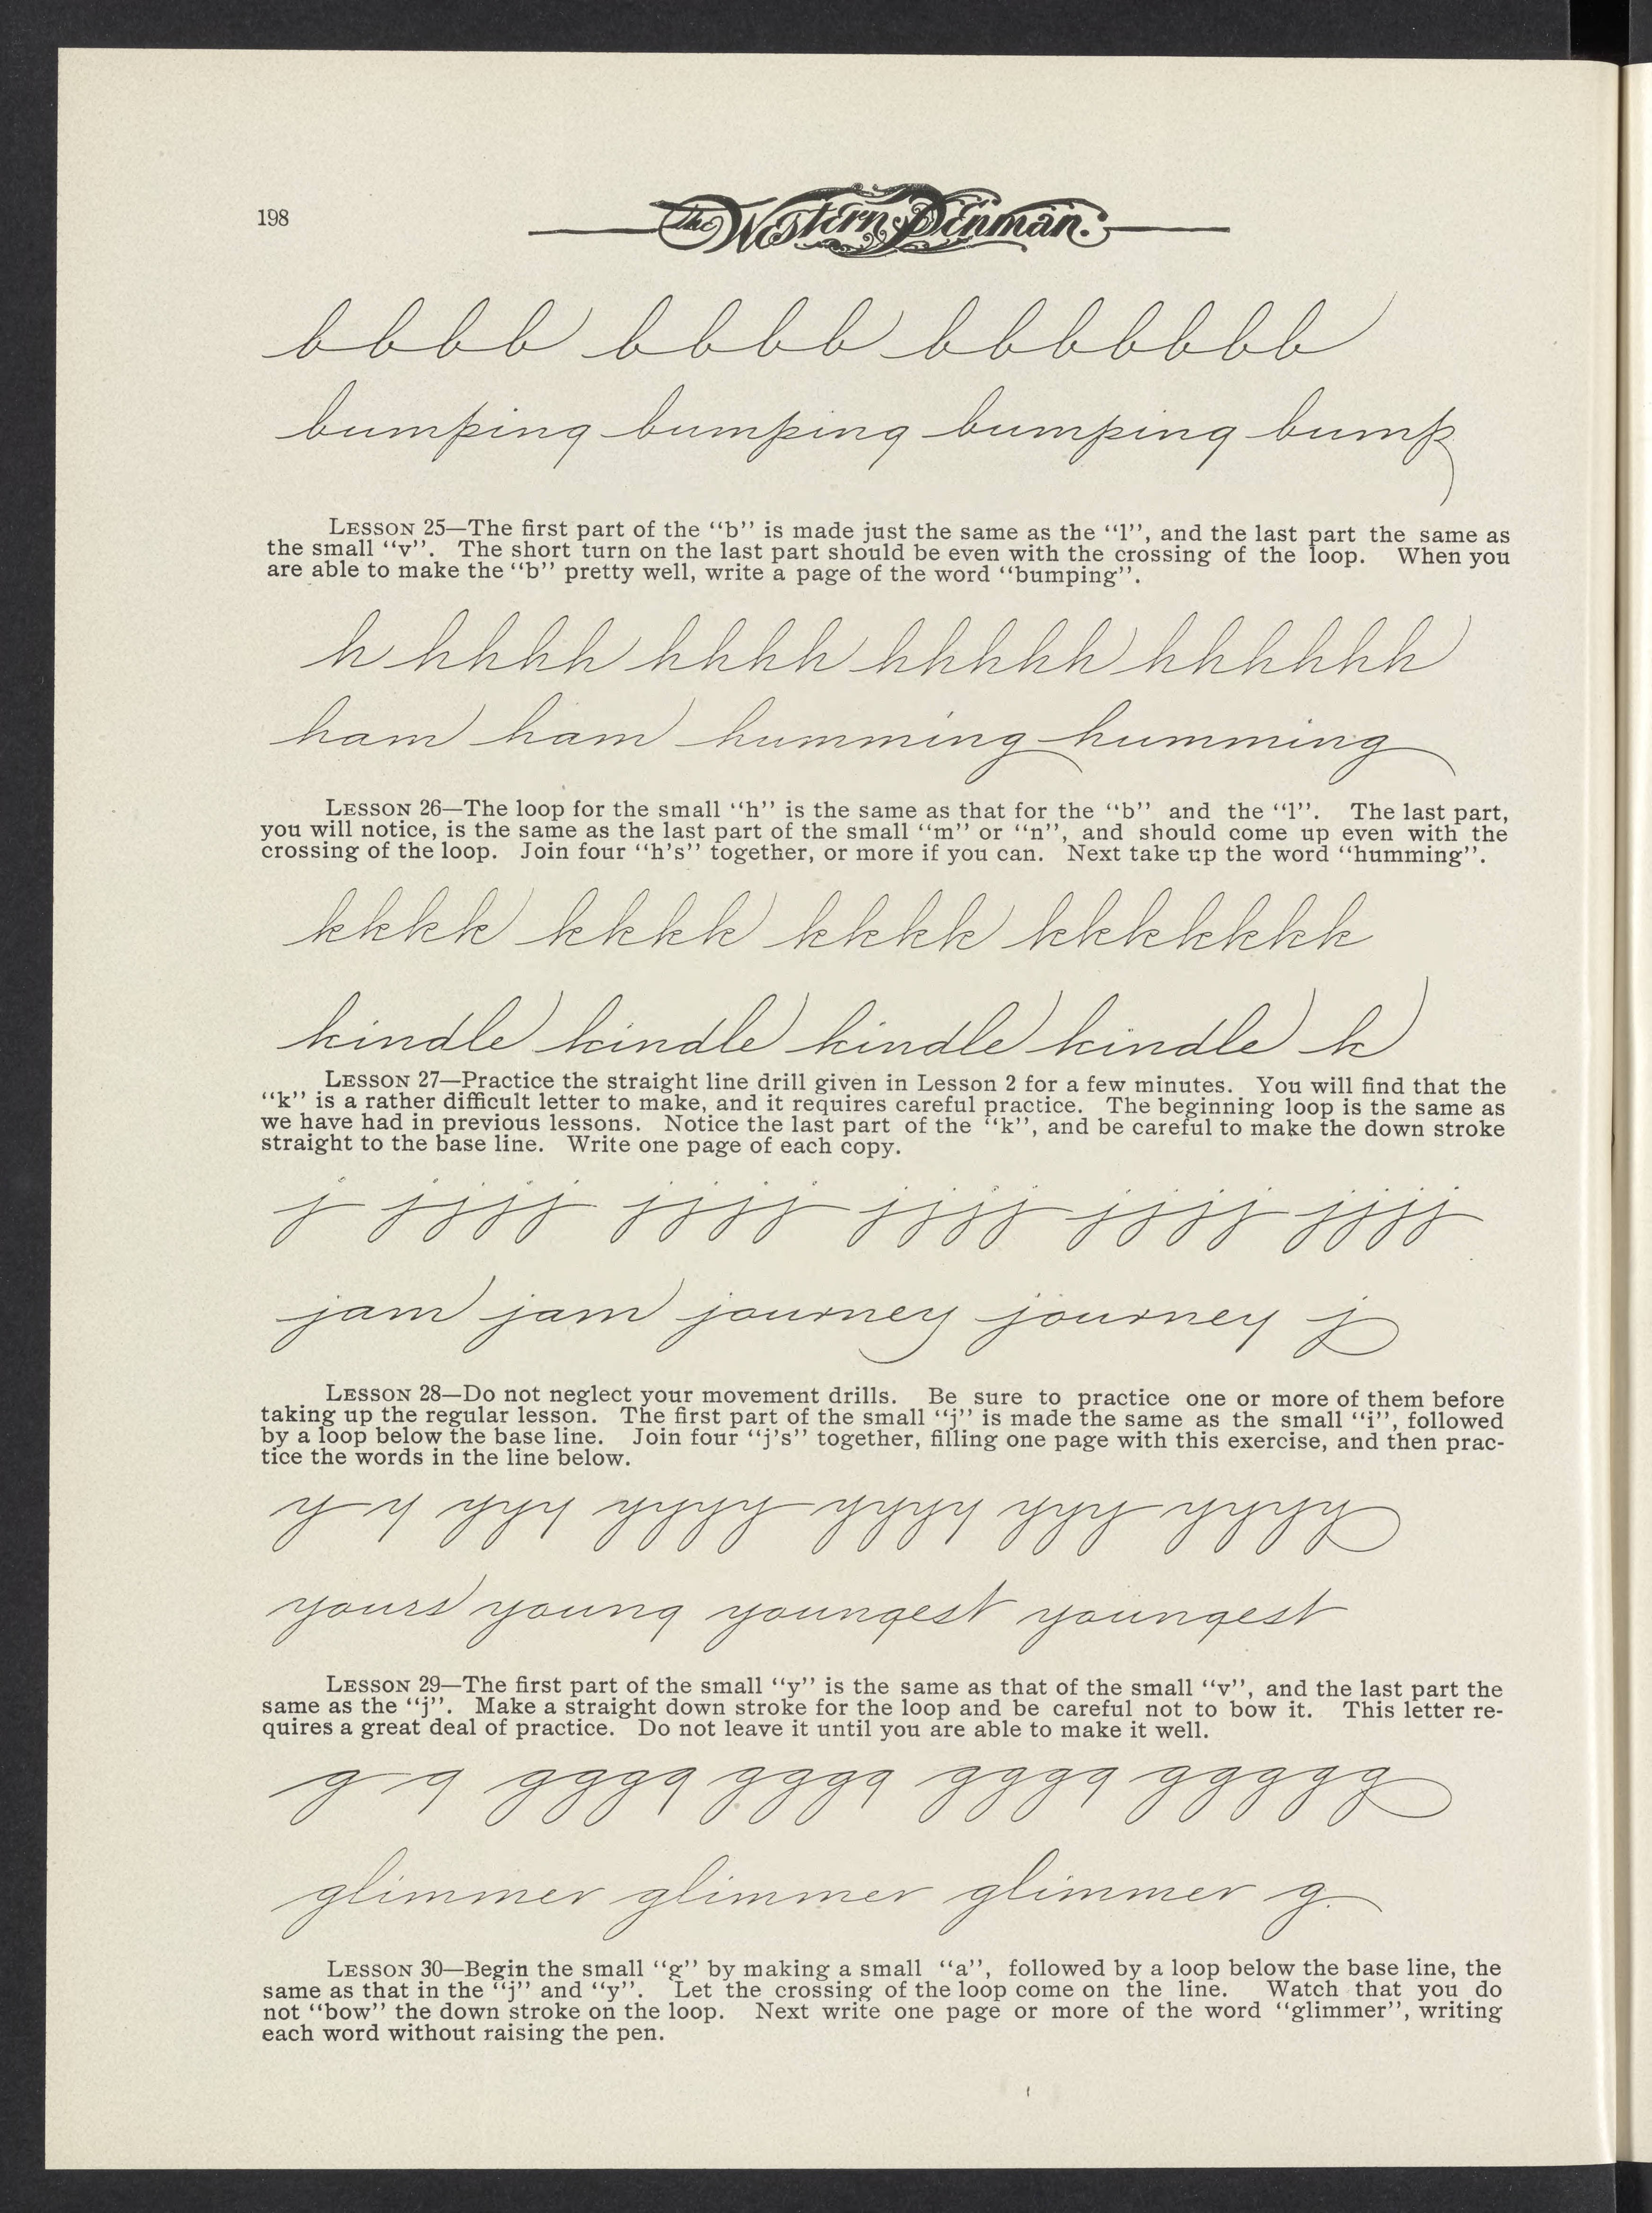 198
The Western Penman.
b b b b b b b b b b b b b b b
bumping bumping bumping bump
LESSON 25—The first part of the "b" is made just the same as the "l", and the last part the same as
the small "v". The short turn on the last part should be even with the crossing of the loop. When you
are able to make the "b" pretty well, write a page of the word "bumping".
h hhhh hhhh hhhhh hhhhhh
ham ham humming humming
LESSON 26—The loop for the small "h" is the same as that for the "b" and the "l". The last part,
you will notice, is the same as the last part of the small "m" or "n", and should come up even with the
crossing of the loop. Join four "h's" together, or more if you can. Next take up the word "humming".
kkkk kkkk kkkk kkkkkkk
kindle kindle kindle kindle k
LESSON 27—Practice the straight line drill given in Lesson 2 for a few minutes. You will find that the
"k" is a rather difficult letter to make, and it requires careful practice. The beginning loop is the same as
we have had in previous lessons. Notice the last part of the "k", and be careful to make the down stroke
straight to the base line. Write one page of each copy.
j jjjj jjjj jjjj jjjj jjjj
jam jam journey journey j
LESSON 28—Do not neglect your movement drills. Be sure to practice one or more of them before
taking up the regular lesson. The first part of the small "j" is made the same as the small "i", followed
by a loop below the base line. Join four "j's" together, filling one page with this exercise, and then prac-
tice the words in the line below.
y y yyy yyyy yyyy yyy yyyy
yours young youngest youngest
LESSON 29—The first part of the small "y" is the same as that of the small "v", and the last part the
same as the "j". Make a straight down stroke for the loop and be careful not to bow it. This letter re-
quires a great deal of practice. Do not leave it until you are able to make it well.
g g gggg gggg gggg ggggg
glimmer glimmer glimmer g.
LESSON 30—Begin the small "g" by making a small "a", followed by a loop below the base line, the
same as that in the "j" and "y". Let the crossing of the loop come on the line. Watch that you do
not "bow" the down stroke on the loop. Next write one page or more of the word "glimmer", writing
each word without raising the pen.